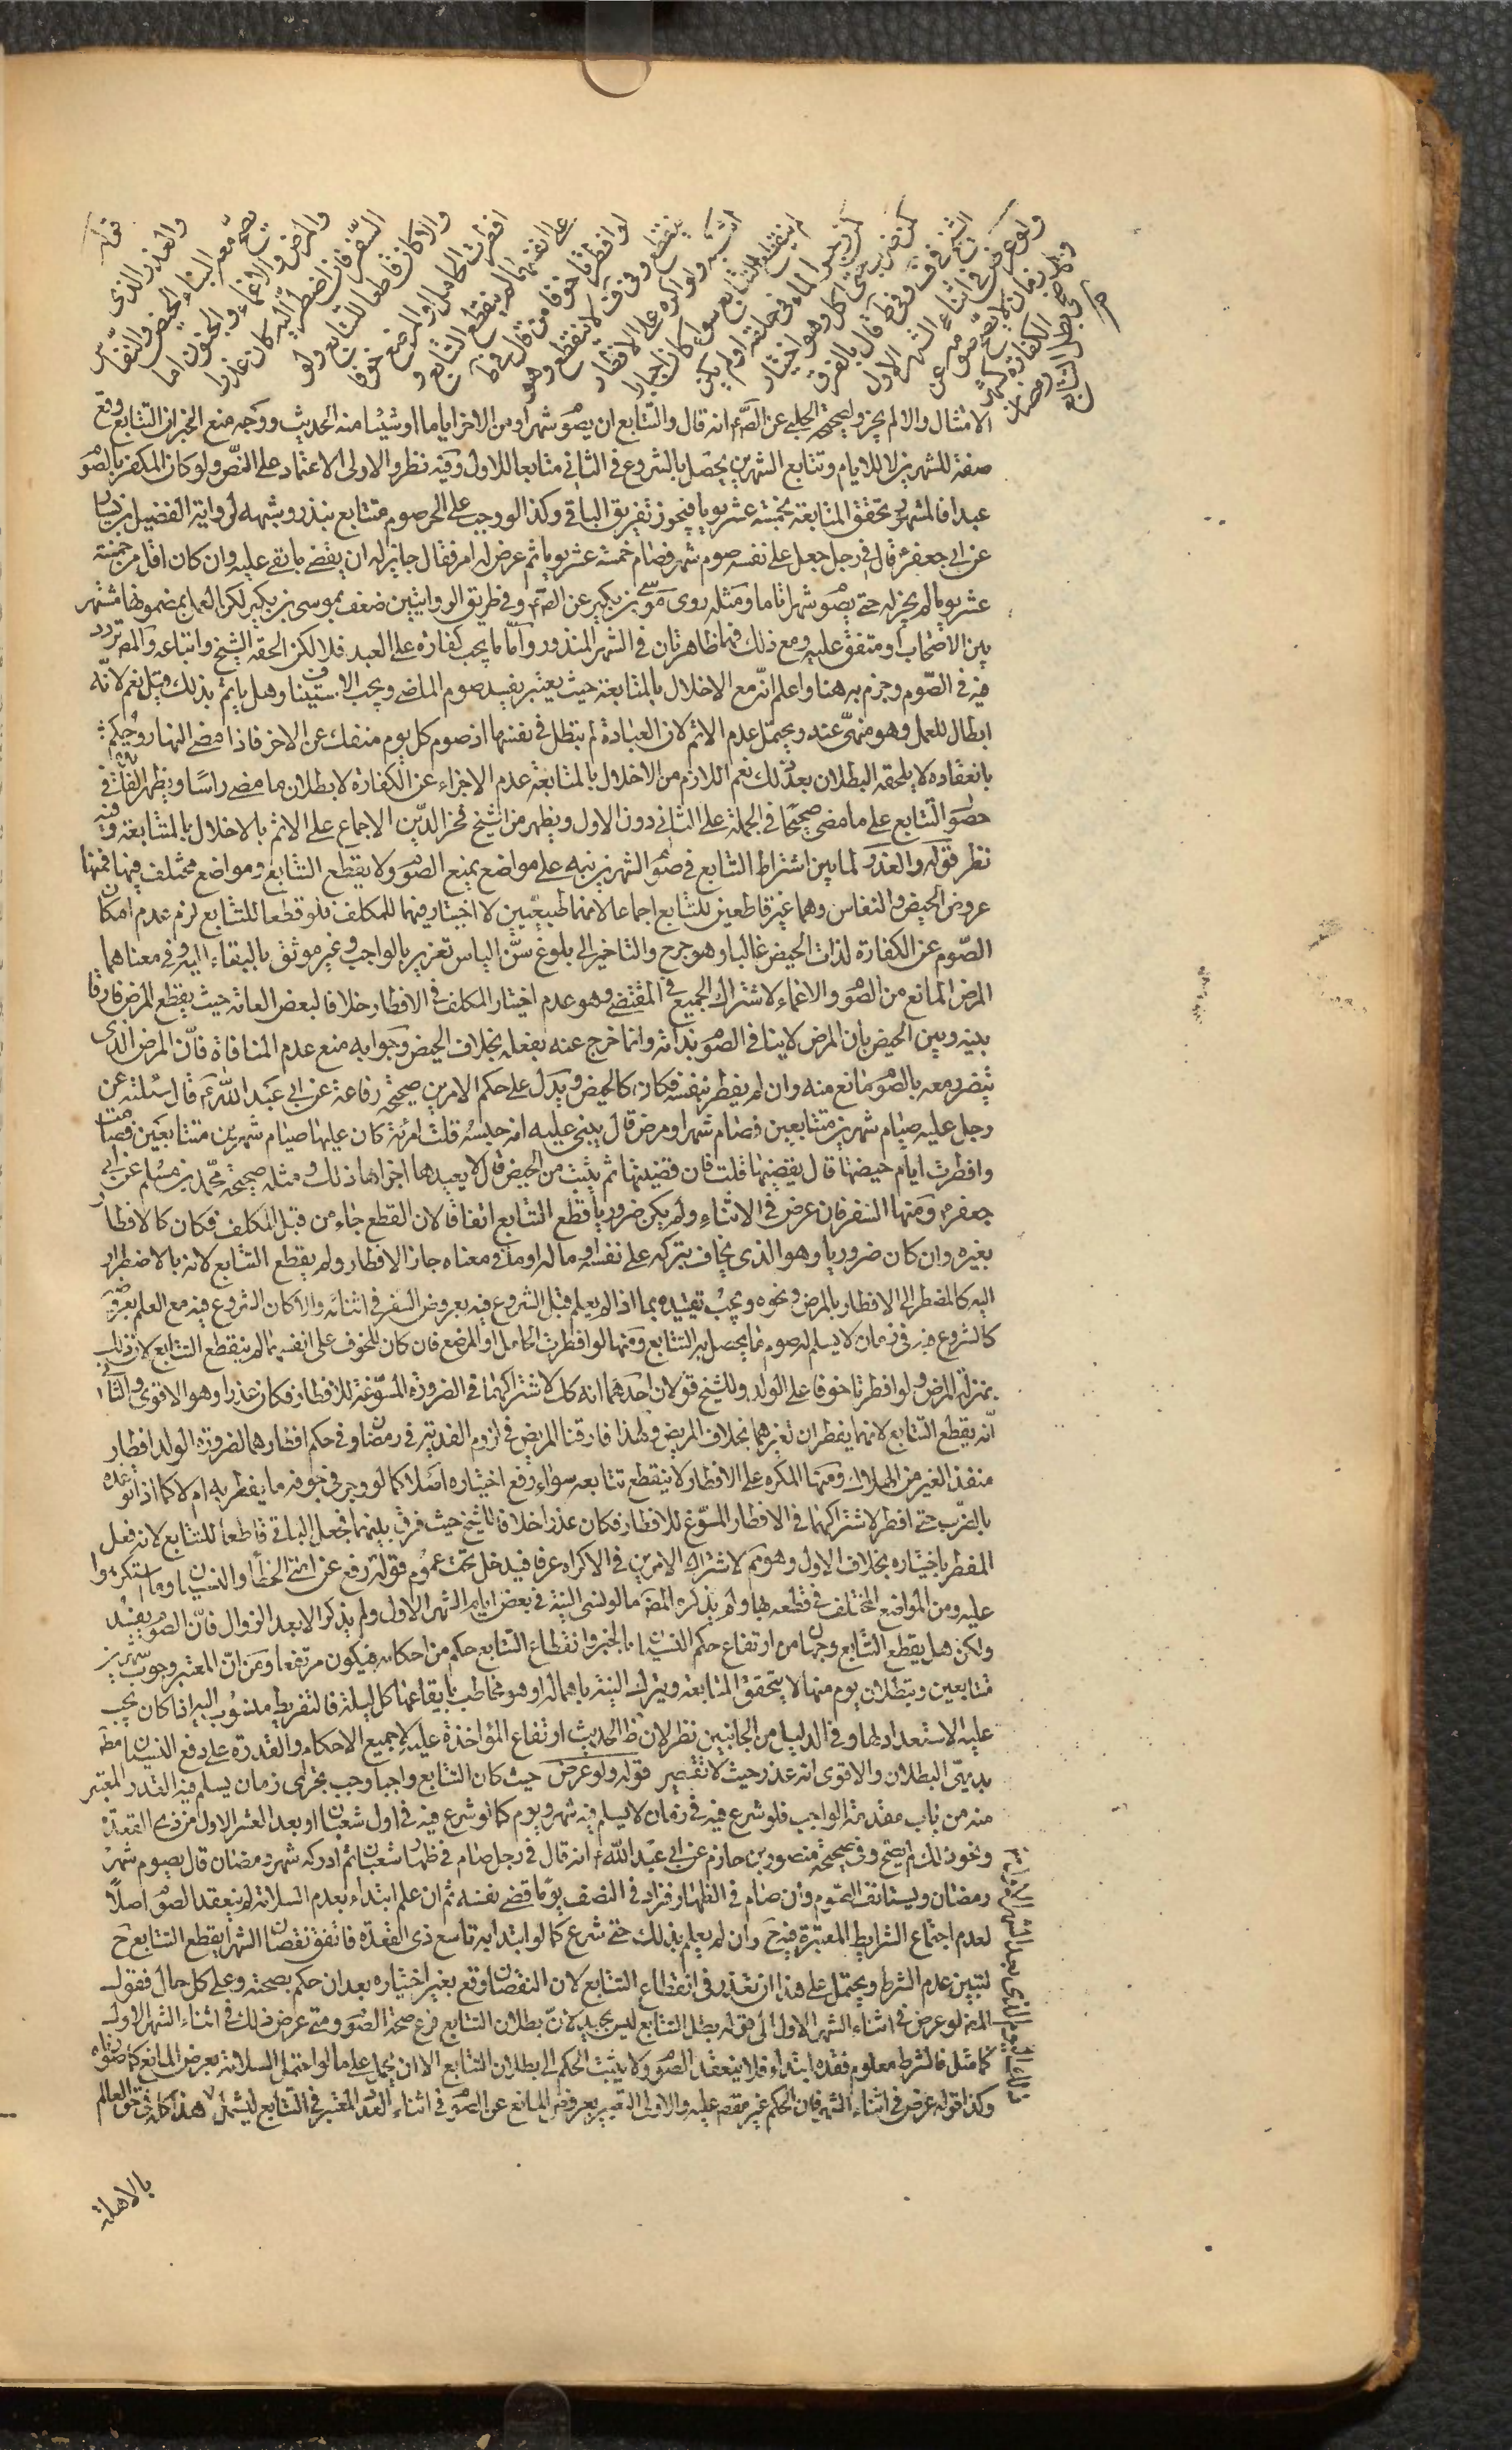 والعذر الذي
يصح معه البناء الحيض والنفاس
والمرض والاغماء والجنون اما
السفر فان اضطر اليه كان عذرا
والا كان قاطعا للتتابع ولو
افطرت الحامل او المرضع خوفا
على انفسهما لم ينقطع التتابع و
لو افطرتا خوفا من قال في ط
ينقطع وفي ف لا ينقطع وهو
اشبه ولو اكره على الافطار
لم ينقطع التتابع سواء كان اجبارا
كمن وجر الماء في حلقه او لم يكن
كمن ضرب حتى اكل وهو اختيار
الشيخ في ف وفي ط قال بالفرق
ولو عرض في اثناء الشهر الاول
زمان لا يصح صومه عن
الكفارة كشهر رمضان
والاضحى بطل التتابع
الامتثال والا لم يجز ولصحيحة الحلبي عن الص انه قال والتتابع ان يصوم شهرا ومن الاخر اياما او شيئا منه الحديث ووجه منع الخبر ان التتابع وقع
صفة للشهرين لا للايام وتتابع الشهرين يحصل بالشروع في الثاني متابعا للاول وفيه نظر والاولى الاعتماد على النص ولو كان المكفر بالصوم
عبدا فالمشهور تحقق المتابعة بخمسة عشر يوما فيجوز تفريق الباقي وكذا لو وجب على الحر صوم متتابع بنذر وشبهه لرواية الفضيل بن يسار
عن ابي جعفر قال في رجل جعل على نفسه صوم شهر فصام خمسة عشر يوما ثم عرض له امر فقال جايز له ان يقضي ما بقي عليه وان كان اقل من خمسة
عشر يوما لم يجز له حتى يصوم شهرا تاما ومثله روى موسى بن بكير عن الص وفي طريق الروايتين ضعف بموسى بن بكير لكن العمل بمضمونها مشتهر
بين الاصحاب او متفق عليه ومع ذلك فهما ظاهرتان في الشهر المنذور واما ما يجب كفارة على العبد فلا لكن الحقه الشيخ واتباعه والمص تردد
فيه في الصوم وجزم به هنا واعلم انه مع الاخلال بالمتابعة حيث يعتبر يفسد صوم الماضي ويجب الاستيناف وهل ياثم بذلك قيل نعم لانه
ابطال للعمل وهو منهي عنه ويحتمل عدم الاثم لان العبادة لم تبطل في نفسها اذ صوم كل يوم منفك عن الاخر فاذا مضى النهار وحكم
بانعقاده لا يلحقه البطلان بعد ذلك نعم اللازم من الاخلال بالمتابعة عدم الاجزاء عن الكفارة لا بطلان ما مضى راسا ويظهر الفائدة في
حصول التتابع على ما مضى صحيحا في الجملة على الثاني دون الاول ويظهر من الشيخ فخر الدين الاجماع على الاثم بالاخلال بالمتابعة وفيه
نظر قوله والعذر لما بين اشتراط التتابع في صوم الشهرين نبه على مواضع يمنع الصوم ولا يقطع التتابع ومواضع مختلف فيها فمنها
عروض الحيض والنفاس وهما غير قاطعين للتتابع اجماعا لانهما طبيعيين لا اختيار فيهما للمكلف فلو قطعا للتتابع لزم عدم امكان
الصوم عن الكفارة لذات الحيض غالبا وهو حرج والتاخير الى بلوغ سن الياس تعزير بالواجب وغير موثق بالبقاء اليه وفي معناهما
المرض المانع من الصوم والاغماء لاشتراك الجميع في المقتضي وهو عدم اختيار المكلف في الافطار خلافا لبعض العامة حيث يقطع المرض فارقا
بينه وبين الحيض بان المرض لا ينافي الصوم بذاته وانما خرج عنه بفعله بخلاف الحيض وجوابه منع عدم المنافاة فان المرض الذي
يتضرر معه بالصوم مانع منه وان لم يفطر بنفسه فكان كالحيض ويدل على حكم الامرين صحيحة رفاعة عن ابي عبد الله ع قال سئلته عن
رجل عليه صيام شهرين متتابعين فصام شهرا ومرض قال يبني عليه الله حبسه قلت امرئة كان عليها صيام شهرين متتابعين فصامت
وافطرت ايام حيضها قال يقضيها قلت فان قضيتها ثم يئست من الحيض قال لا يعيدها اجزاها ذلك ومثله صحيحة محمد بن مسلم عن ابي
جعفر ومنها السفر فان عرض في الاثناء ولم يكن ضروريا قطع التتابع اتفاقا لان القطع جاء من قبل المكلف فكان كالافطار
بغيره وان كان ضروريا وهو الذي يخاف بتركه على نفسه او ماله او ما في معناه جاز الافطار ولم يقطع التتابع لانه بالاضطرار
اليه كالمضطر الى الافطار بالمرض ونحوه ويجب تقييده بما اذا لم يعلم قبل الشروع فيه بعروض السفر في اثنائه والا كان الشروع فيه مع العلم بعروضه
كالشروع فيه في زمان لا يسلم له صوم ما يحصل به التتابع ومنها لو افطرت الحامل او المرضع فان كان للخوف على انفسهما لم ينقطع التتابع لان ذلك
بمنزلة المرض ولو افطرتا خوفا على الولد وللشيخ قولان احدهما انه كك لاشتراكهما في الضرورة المسوغة للافطار فكان عذرا وهو الاقوى والثاني
انه يقطع التتابع لانهما يفطران لغيرهما بخلاف المريض ولهذا فارقتا المريض في لزوم الفدية في رمضان وفي حكم افطارهما لضرورة الولد افطار
منقذ الغير من الهلاك ومنها المكره على الافطار لا ينقطع تتابعه سواء رفع اختياره اصلا كما لو وجر في جوفه ما يفطر به ام لا كما اذا توعده
بالضرب حتى افطر لاشتراكهما في الافطار المسوغ للافطار فكان عذرا خلافا للشيخ حيث فرق بينهما فجعل الباقي قاطعا للتتابع لانه فعل
المفطر باختياره بخلاف الاول وهو مم لاشتراك الامرين في الاكراه عرفا فيدخل تحت عموم قوله رفع عن امتي الخطأ والنسيان وما استكرهوا
عليه ومن المواضع المختلف في قطعه بها ولم يذكره المص ما لو نسي النية في بعض ايام الشهر الاول ولم يذكر الا بعد الزوال فان الصوم يفسد
ولكن هل يقطع التتابع وجهان من ارتفاع حكم النسيان بالخبر وانقطاع التتابع حكم من احكامه فيكون مرتفعا ومن ان المعتبر وجوب شهرين
متتابعين وببطلان يوم منها لا يتحقق المتابعة وبترك النية باهماله او هو مخاطب بايقاعها كل ليلة فالتفريط منسوب اليه اذا كان يجب
عليه الاستعداد لها وفي الدليل من الجانبين نظر لان ظ الحديث ارتفاع المؤاخذة عليه لا جميع الاحكام والقدرة على دفع النسيان مط
بديهي البطلان والاقوى انه عذر حيث لا تقصير قوله ولو عرض حيث كان التتابع واجبا وجب تحري زمان يسلم فيه القدر المعتبر
منه من باب مقدمة الواجب فلو شرع فيه في زمان لا يسلم فيه شهر ويوم كما لو شرع فيه في اول شعبان او بعد العشر الاول من ذي القعدة
ونحو ذلك لم يصح وفي صحيحة منصور بن حازم عن ابي عبد الله ع انه قال في رجل صام في ظهار شعبان ثم ادركه شهر رمضان قال يصوم شهر
رمضان ويستانف الصوم وان صام في الظهار فزاد في النصف يوما قضى بقيته ثم ان علم ابتداء بعدم السلامة لم ينعقد الصوم اصلا
لعدم اجتماع الشرايط المعتبرة فيه ح وان لم يعلم بذلك حتى شرع كما لو ابتدا به تاسع ذي القعدة فاتفق نقصان الشهر انقطع التتابع ح
لتبين عدم الشرط ويحتمل على هذا ان تعذر في انقطاع التتابع لان النقصان وقع بغير اختياره بعد ان حكم بصحته وعلى كل حال فقول
المص لو عرض في اثناء الشهر الاول الى قوله بطل التتابع ليس بجيد لان بطلان التتابع فرع صحة الصوم ومتى عرض ذلك في اثناء الشهر الاول
كما مثل فالشرط معلوم فقده ابتداء فلا ينعقد الصوم ولا يثبت الحكم الى بطلان التتابع الا ان يحمل على ما لو احتمل السلامة بعرض المانع كما صورناه
وكذا قوله عرض في اثناء الشهر فان الحكم غير مقصور عليه والاولى التعبير بعروض المانع عن الصوم في اثناء العدد المعتبر في التتابع ليشمل هذا كله في حق العالم
بالاهلة